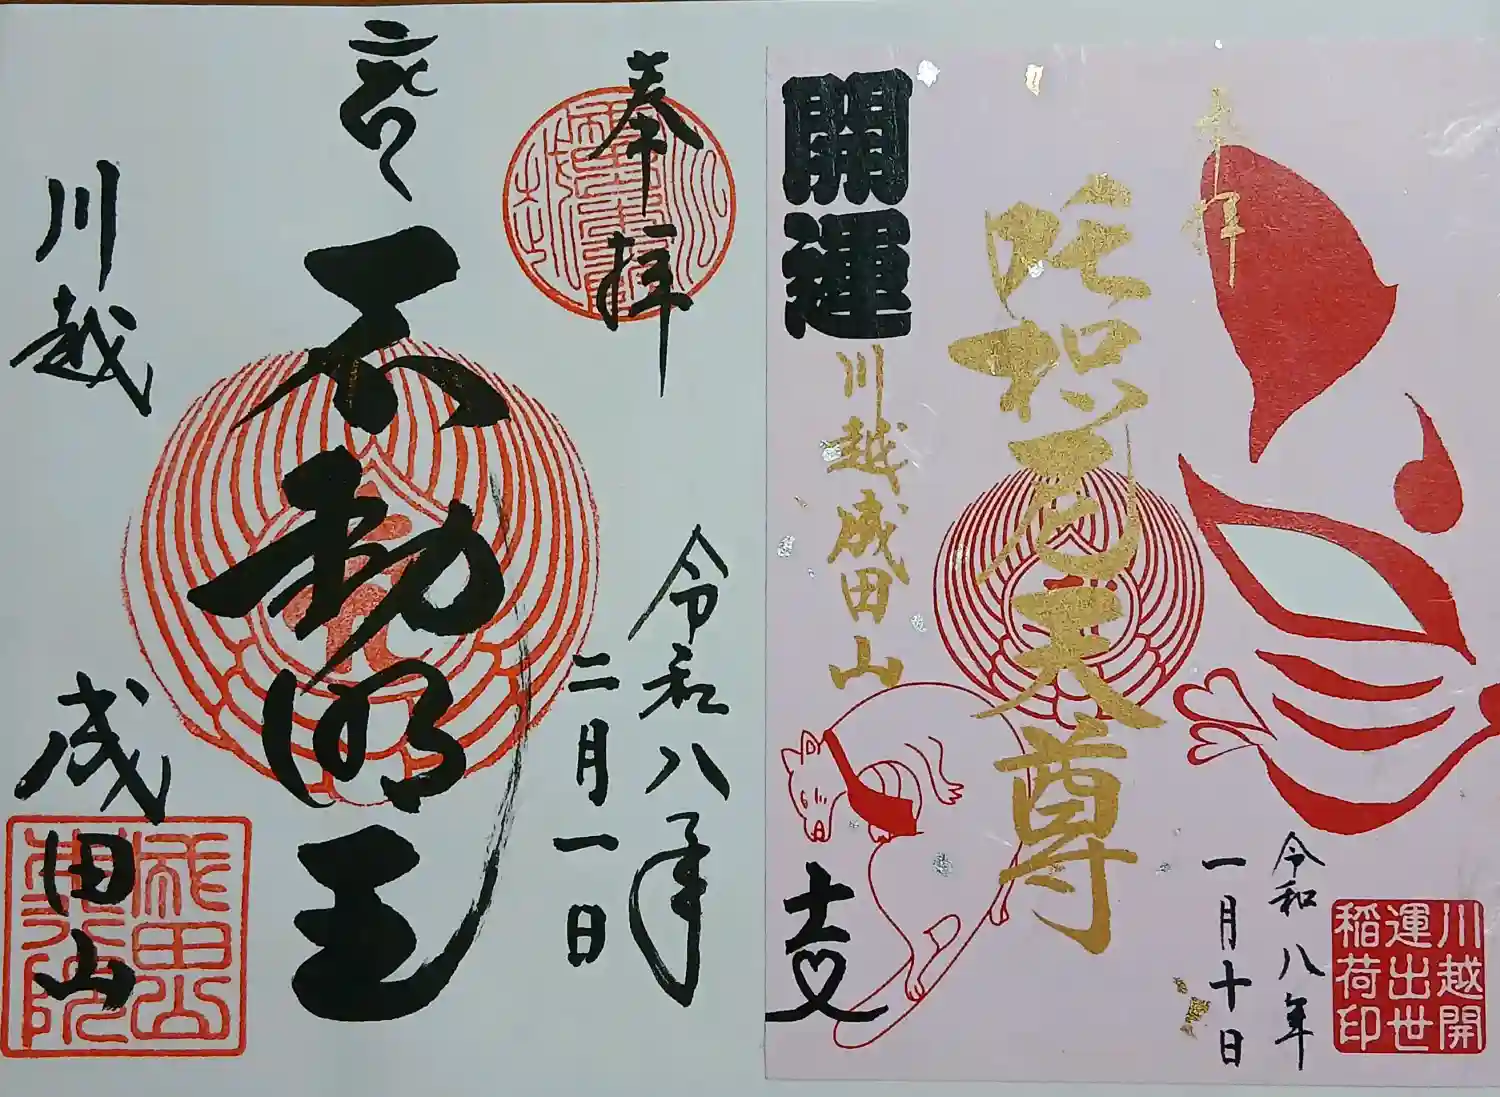 奉拝
令和八年
二月一日
不動明王
川越
成田山
奉拝
吒枳尼天尊
開運
川越成田山
干支
令和八年
一月十日
川越開
運出世
稲荷印